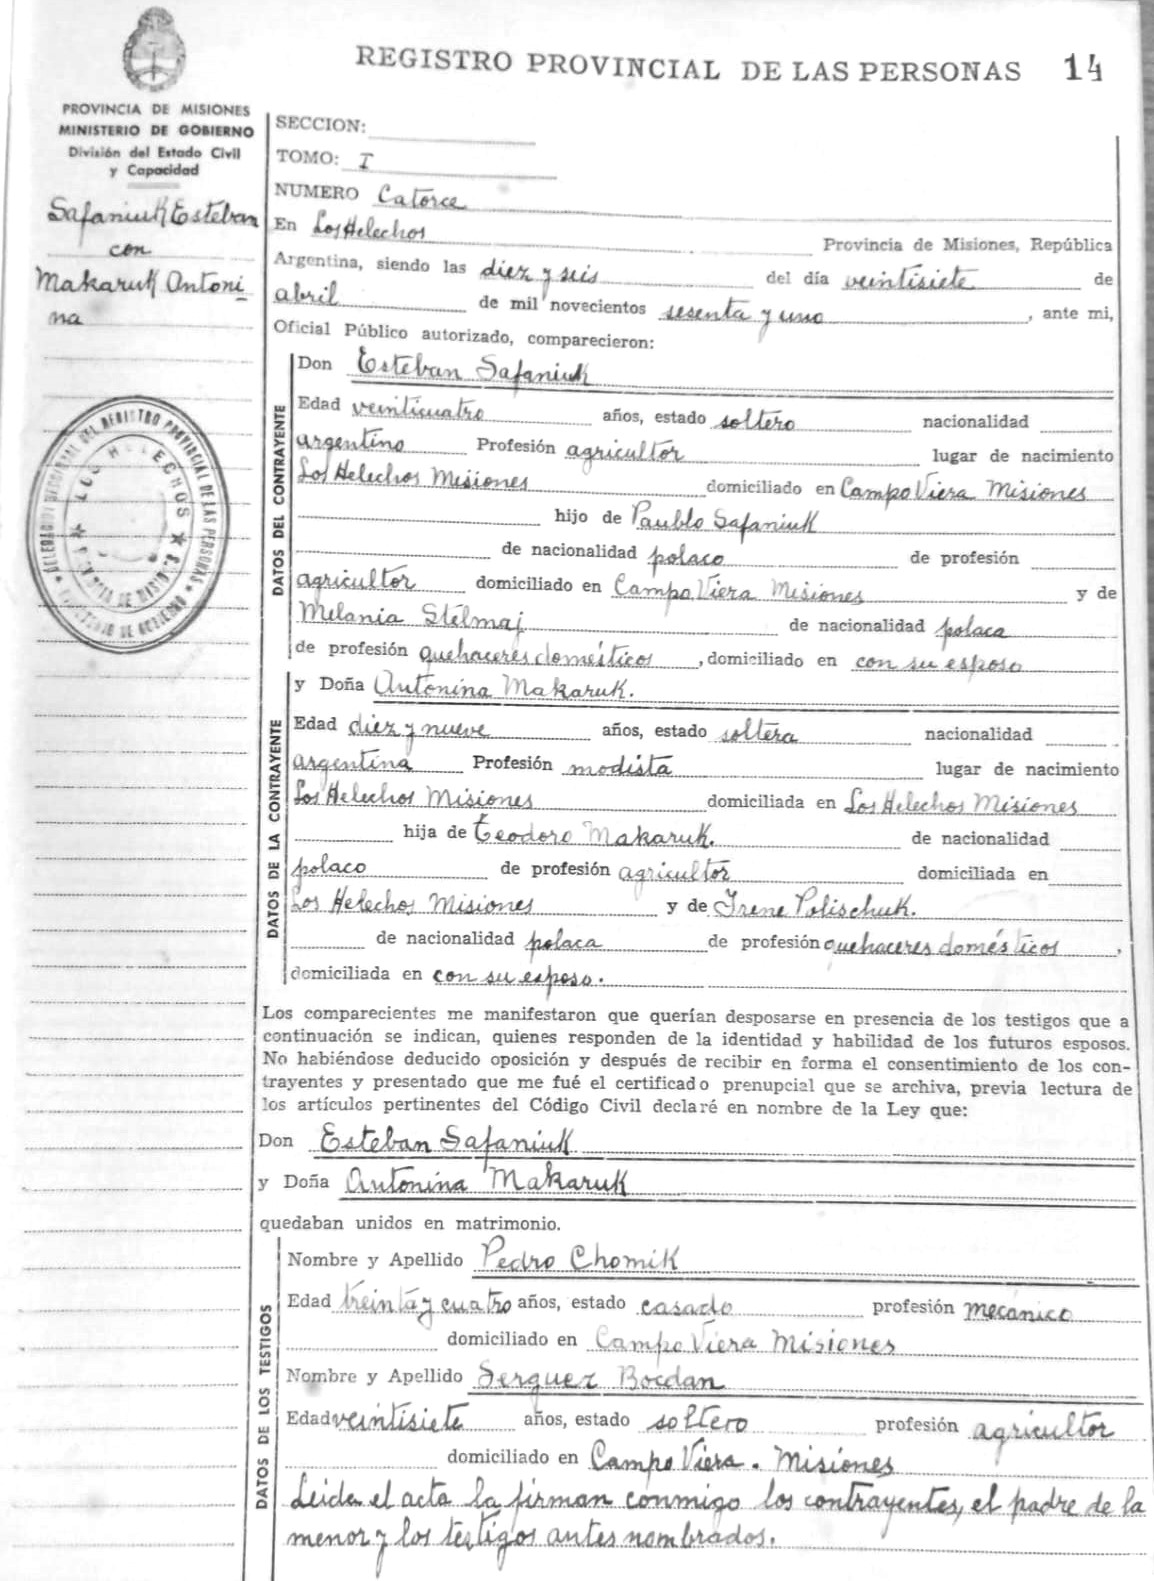 REGISTRO PROVINCIAL DE LAS PERSONAS 14
PROVINCIA DE MISIONES
MINISTERIO DE GOBIERNO
División del Estado Civil
y Capacidad
Safaniuk Esteban
con
Makaruk Antoni
na
LOS HELECHOS
SECCION:
TOMO: I
NUMERO Catorce
En Los Helechos Provincia de Misiones, República
Argentina, siendo las diez y seis del día veintisiete de
abril de mil novecientos sesenta y uno, ante mi,
Oficial Público autorizado, comparecieron:
DATOS DEL CONTRAYENTE
Don Esteban Safaniuk
Edad veinticuatro años, estado soltero nacionalidad
argentino Profesión agricultor lugar de nacimiento
Los Helechos Misiones domiciliado en Campo Viera Misiones
hijo de Paublo Safaniuk
de nacionalidad polaco de profesión
agricultor domiciliado en Campo Viera Misiones y de
Melania Stélmaj de nacionalidad polaca
de profesión quehaceres domésticos, domiciliado en con su esposo
DATOS DE LA CONTRAYENTE
y Doña Antonina Makaruk.
Edad diez y nueve años, estado soltera nacionalidad
argentina Profesión modista lugar de nacimiento
Los Helechos Misiones domiciliada en Los Helechos Misiones
hija de Teodoro Makaruk. de nacionalidad
polaco de profesión agricultor domiciliada en
Los Helechos Misiones y de Irene Polischuk.
de nacionalidad polaca de profesión quehaceres domésticos,
domiciliada en con su esposo.
Los comparecientes me manifestaron que querían desposarse en presencia de los testigos que a
continuación se indican, quienes responden de la identidad y habilidad de los futuros esposos.
No habiéndose deducido oposición y después de recibir en forma el consentimiento de los con-
trayentes y presentado que me fué el certificado prenupcial que se archiva, previa lectura de
los artículos pertinentes del Código Civil declaré en nombre de la Ley que:
Don Esteban Safaniuk
y Doña Antonina Makaruk
quedaban unidos en matrimonio.
DATOS DE LOS TESTIGOS
Nombre y Apellido Pedro Chomik
Edad treinta y cuatro años, estado casado profesión mecánico
domiciliado en Campo Viera Misiones
Nombre y Apellido Serguez Bocdan
Edad veintisiete años, estado soltero profesión agricultor
domiciliado en Campo Viera. Misiones
Leida el acta la firman conmigo los contrayentes, el padre de la
menor y los testigos antes nombrados.